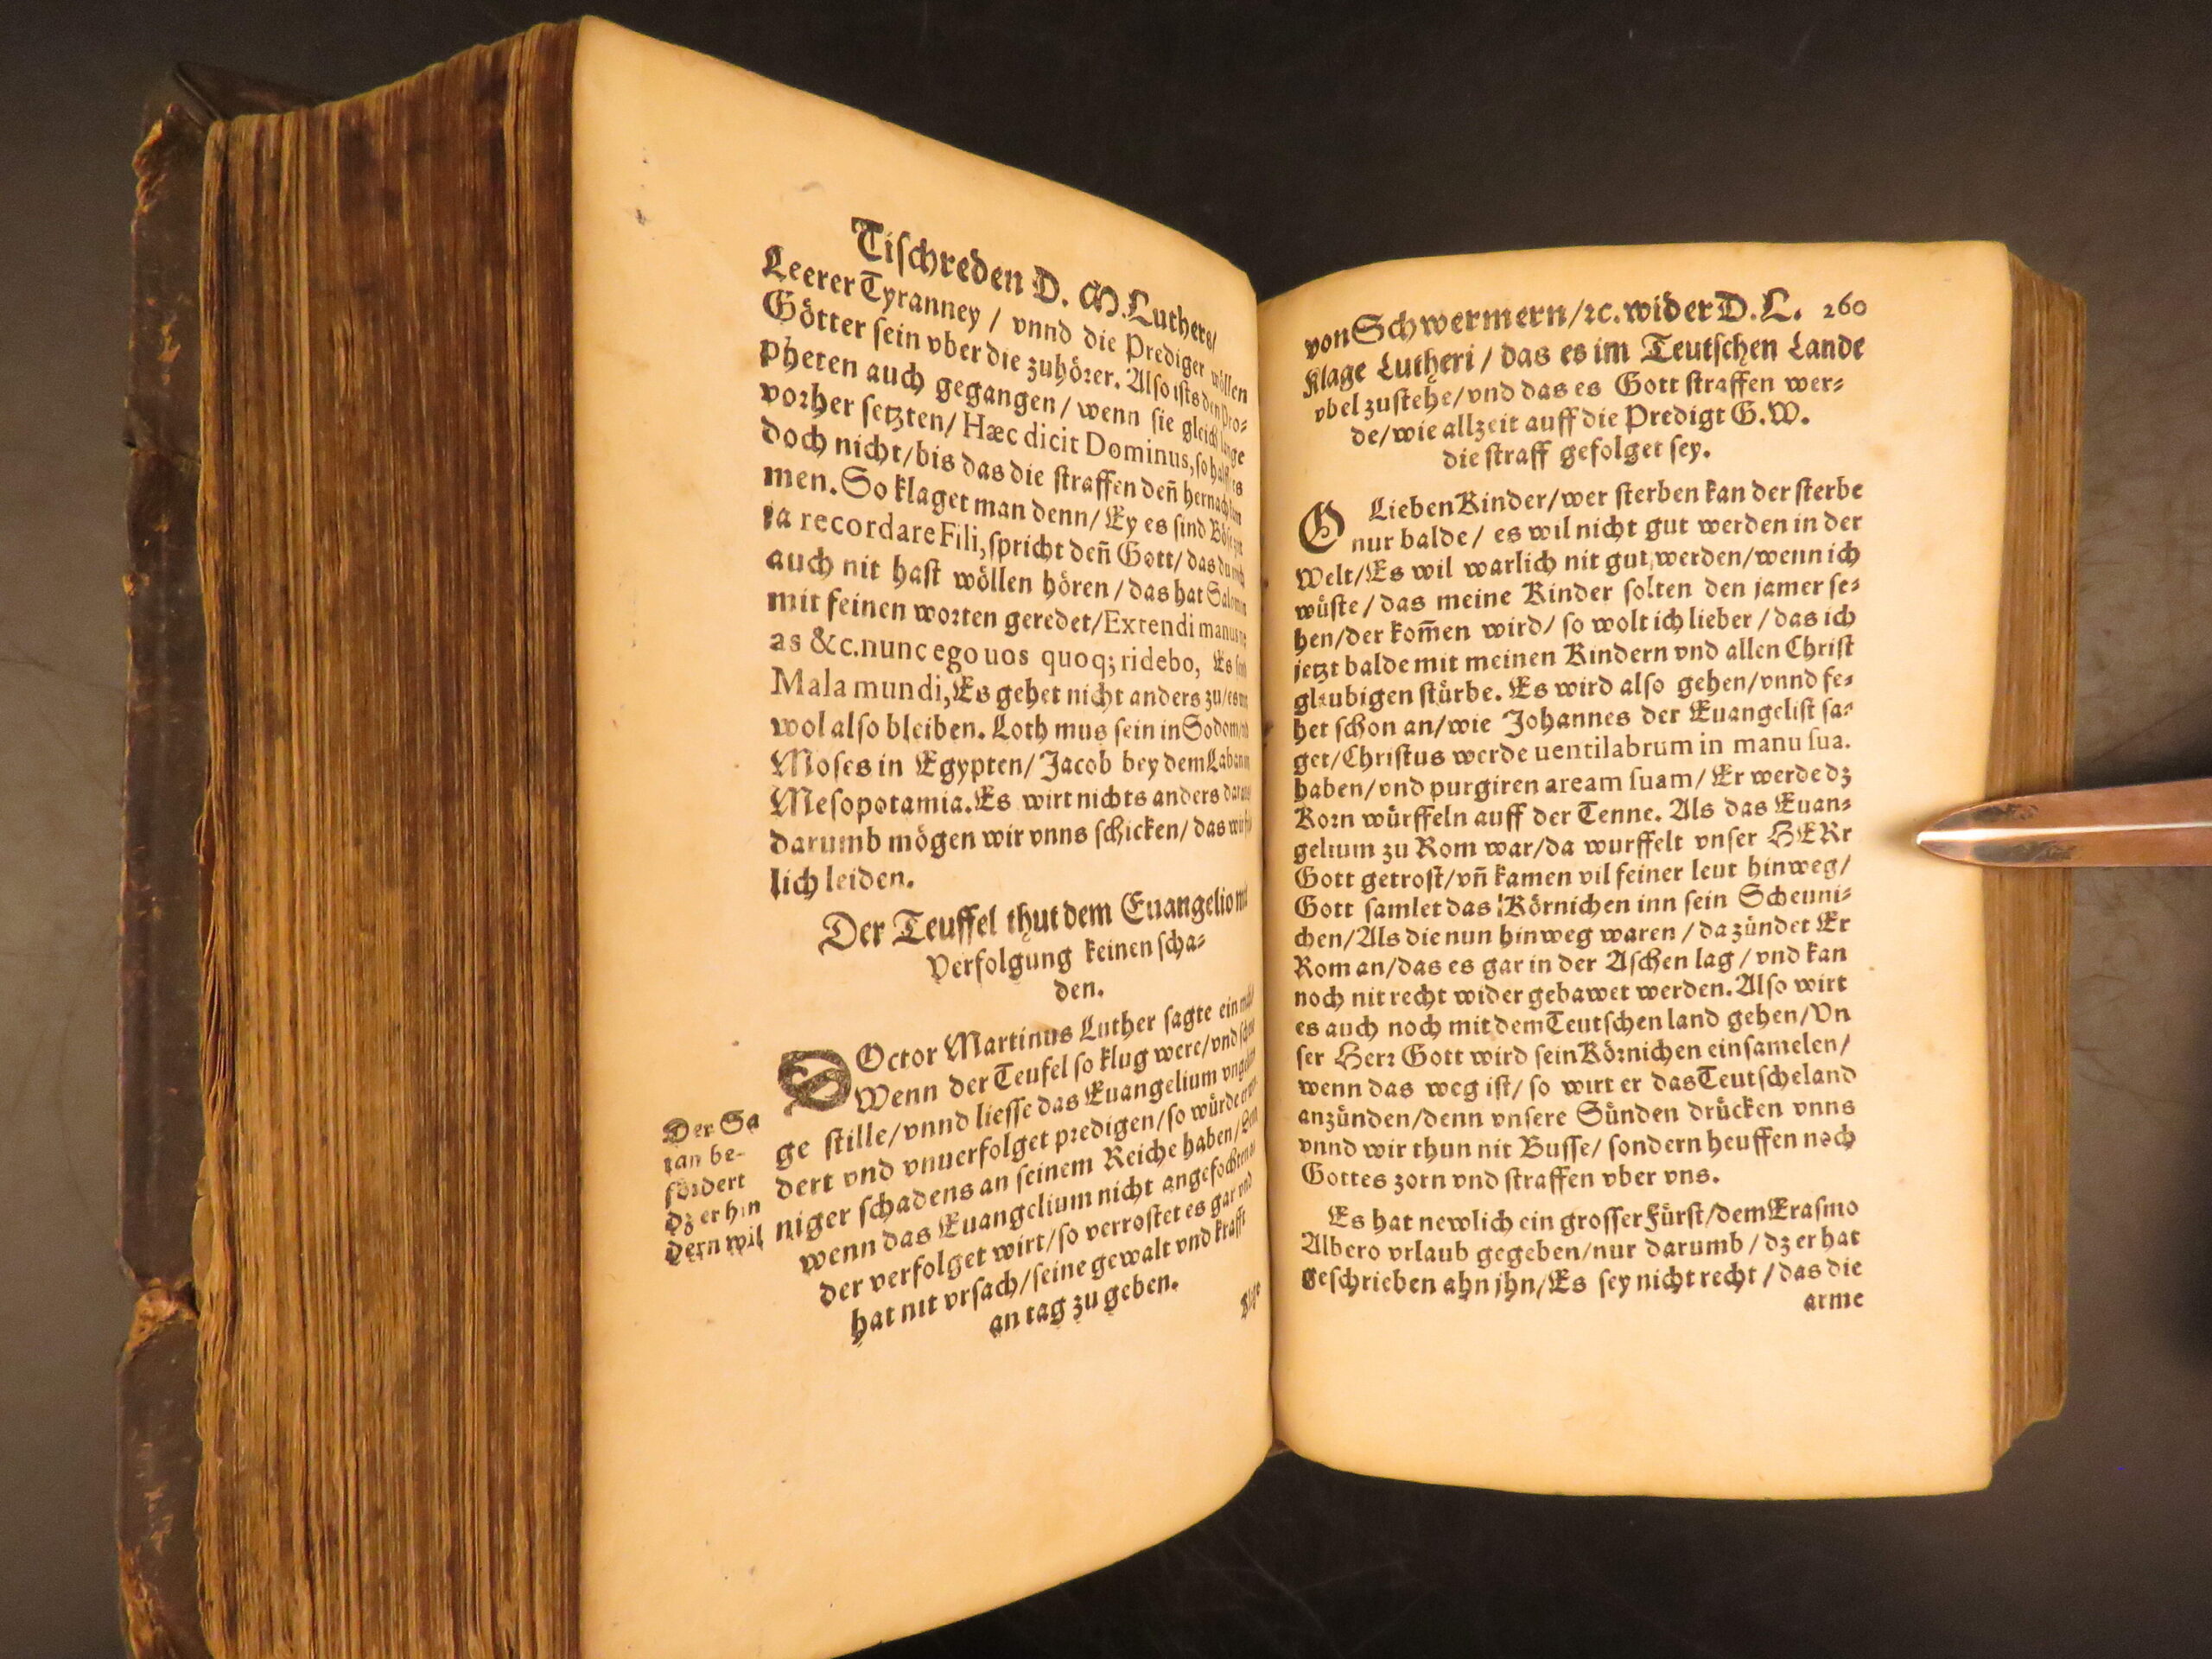 Tischreden D. M. Luthers/
Leerer Tyranney / vnnd die Prediger wöllen
Götter sein vber die zuhörer. Also ists den Pro-
pheten auch gegangen / wenn sie gleich lange
vorher setzten / Hæc dicit Dominus, so halff es
doch nicht / bis das die straffen deñ hernach
men. So klaget man denn / Ey es sind Böse
ja recordare Fili, spricht deñ Gott / das du
auch nit hast wöllen hören / das hat Salomon
mit feinen worten geredet / Extendi manus
as &c. nunc ego uos quoq; ridebo, Es sind
Mala mundi, Es gehet nicht anders zu /
wol also bleiben. Loth mus sein in Sodom
Moses in Egypten / Jacob bey dem Laban
Mesopotamia. Es wirt nichts anders
darumb mögen wir vnns schicken / das
lich leiden.
Der Teuffel thut dem Euangelio mit
verfolgung keinen scha-
den.
DOctor Martinus Luther sagte ein mal
Wenn der Teufel so klug were / vnd
ge stille / vnnd liesse das Euangelium
dert vnd vnuerfolget predigen / so würde er
niger schadens an seinem Reiche haben /
wenn das Euangelium nicht angefochten
der verfolget wirt / so verrostet es gar vnd
hat nit vrsach / seine gewalt vnd krafft
an tag zu geben.
Der Sa
tan be-
fördert
dz er hin
dern wil
Klage
von Schwermern / ꝛc. wider D. L. 260
Klage Lutheri / das es im Teutschen Lande
vbel zustehe / vnd das es Gott straffen wer-
de / wie allzeit auff die Predigt G. W.
die straff gefolget sey.
O Lieben Kinder / wer sterben kan der sterbe
nur balde / es wil nicht gut werden in der
Welt / Es wil warlich nit gut werden / wenn ich
wüste / das meine Kinder solten den jamer se-
hen / der kom̃en wird / so wolt ich lieber / das ich
jetzt balde mit meinen Kindern vnd allen Christ
glaubigen stürbe. Es wird also gehen / vnnd fe-
het schon an / wie Johannes der Euangelist sa-
get / Christus werde uentilabrum in manu sua.
haben / vnd purgiren aream suam / Er werde dz
Korn würffeln auff der Tenne. Als das Euan-
gelium zu Rom war / da wurffelt vnser HERr
Gott getrost / vñ kamen vil feiner leut hinweg /
Gott samlet das Körnichen inn sein Scheuni-
chen / Als die nun hinweg waren / da zündet Er
Rom an / das es gar in der Aschen lag / vnd kan
noch nit recht wider gebawet werden. Also wirt
es auch noch mit dem Teutschen land gehen / Vn
ser Herr Gott wird sein Körnichen einsamelen /
wenn das weg ist / so wirt er das Teutscheland
anzünden / denn vnsere Sünden drücken vnns
vnnd wir thun nit Busse / sondern heuffen noch
Gottes zorn vnd straffen vber vns.
Es hat newlich ein grosser Fürst / dem Erasmo
Albero vrlaub gegeben / nur darumb / dz er hat
geschrieben ahn jhn / Es sey nicht recht / das die
arme